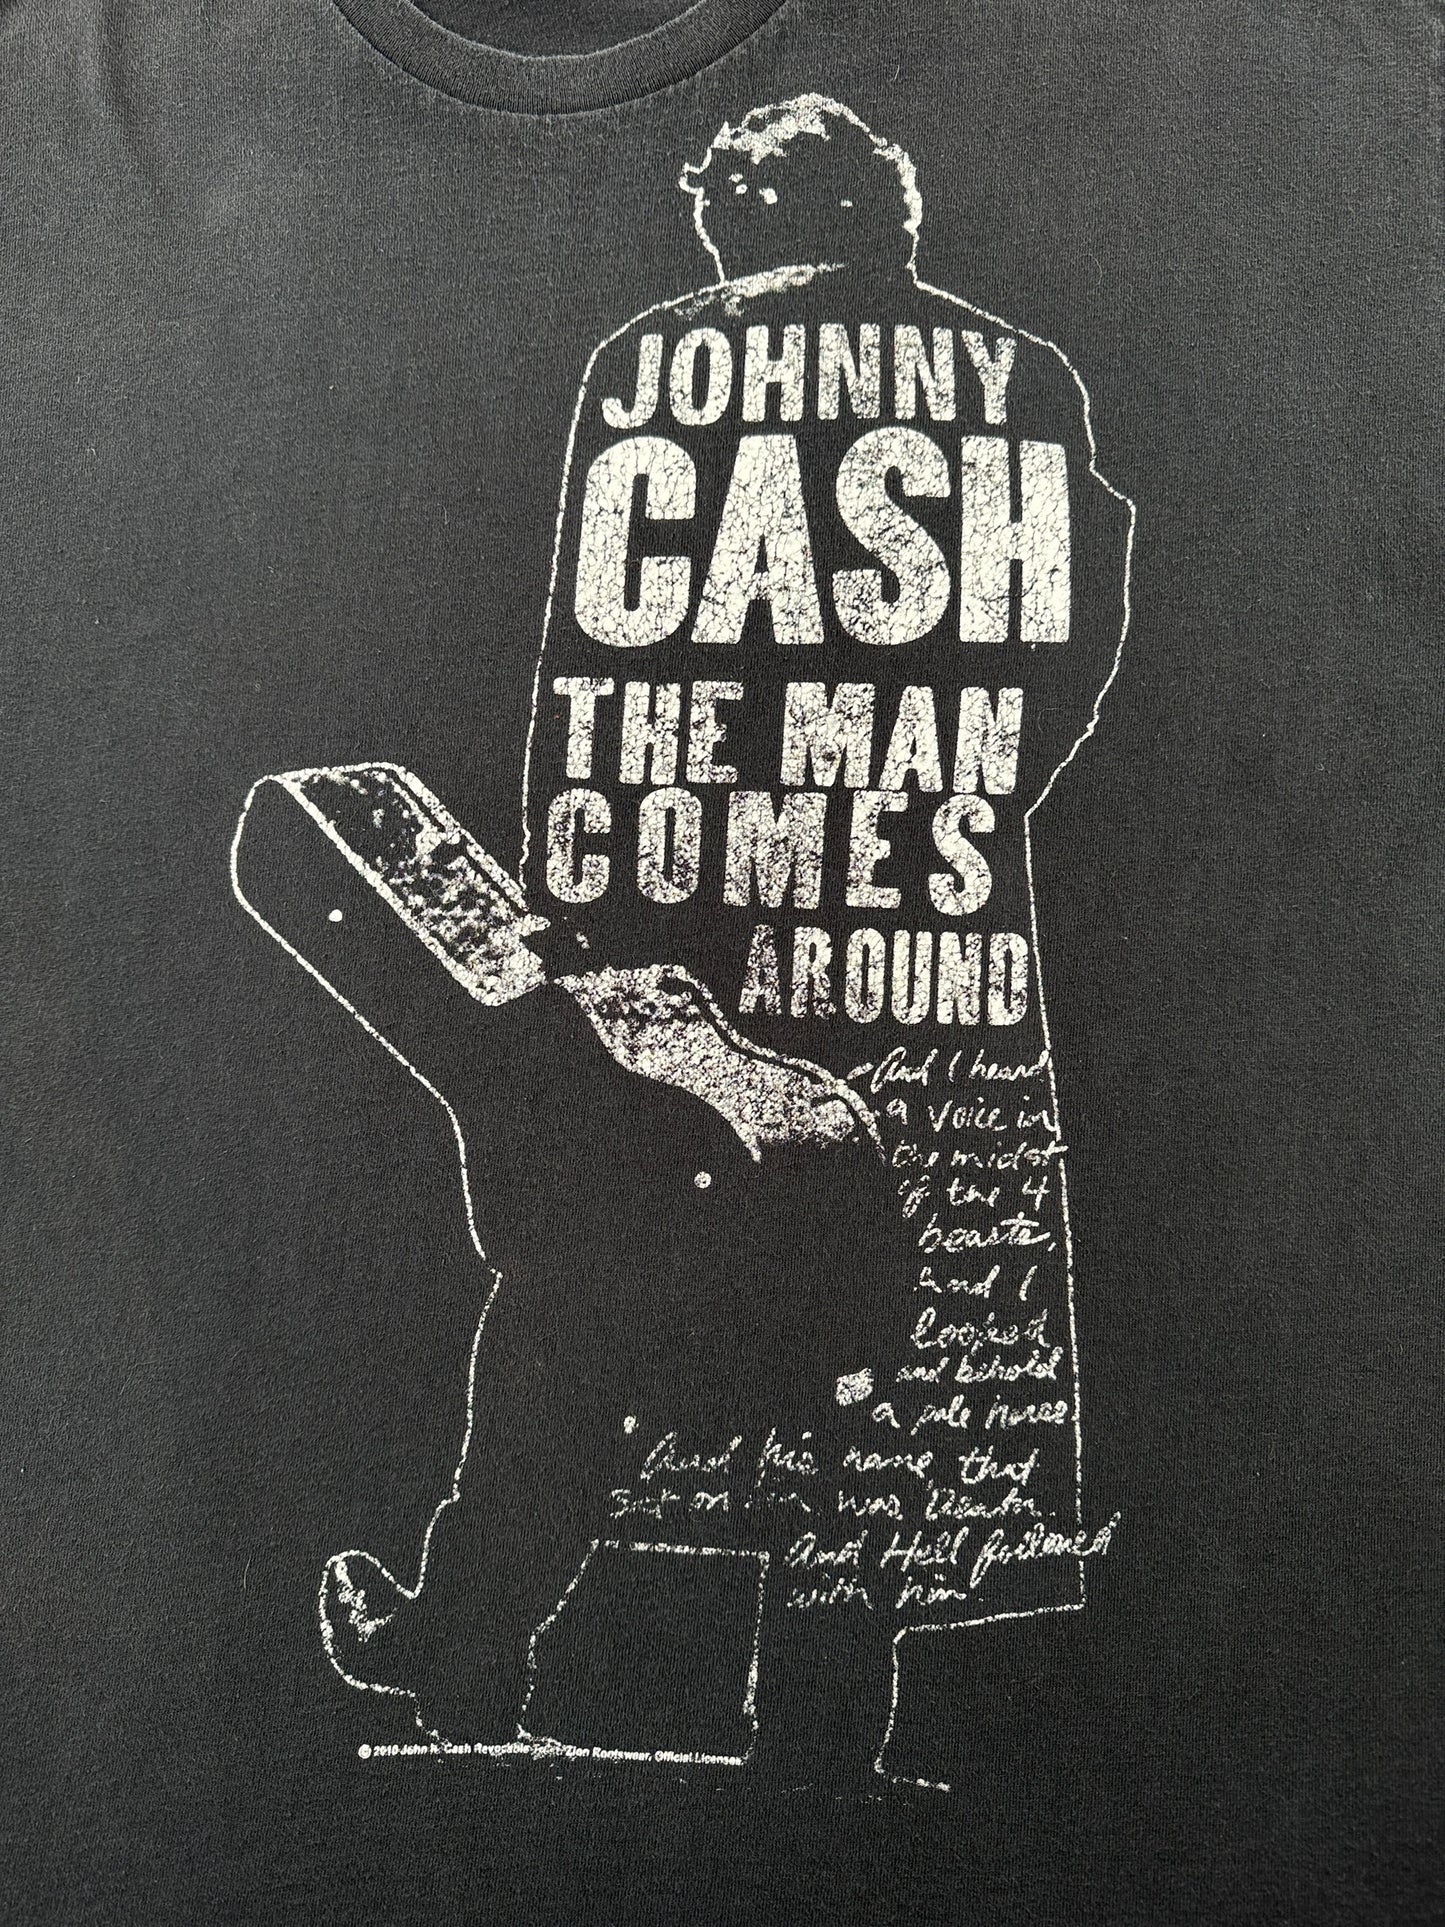 JOHNNY
CASH
THE MAN
COMES
AROUND
And I heard
a voice in
the midst
of the 4
beasts,
and I
looked
and behold
a pale horse
And his name, that
sat on him was Death
And Hell followed
with him.
© 2010 John R. Cash Revocable Trust/Zion Rootswear, Official Licensee.